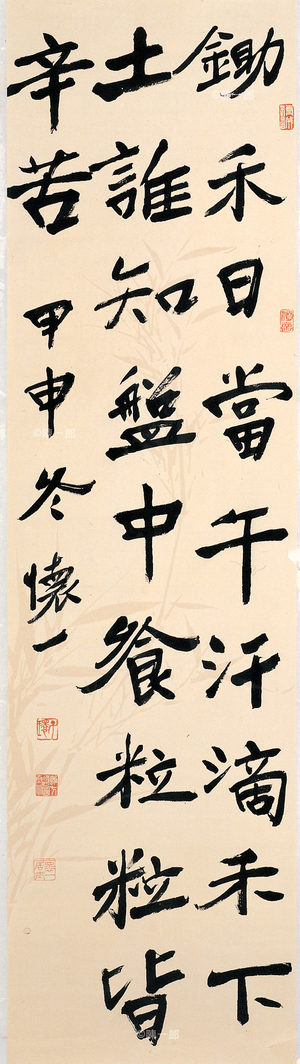 鋤禾日當午汗滴禾下
土誰知盤中飧粒粒皆
辛苦
甲申冬懷一